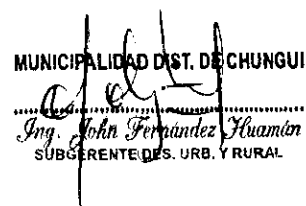 MUNICIPALIDAD DIST. DE CHUNGUI
Ing. John Fernández Huamán
SUBGERENTE DES. URB. Y RURAL